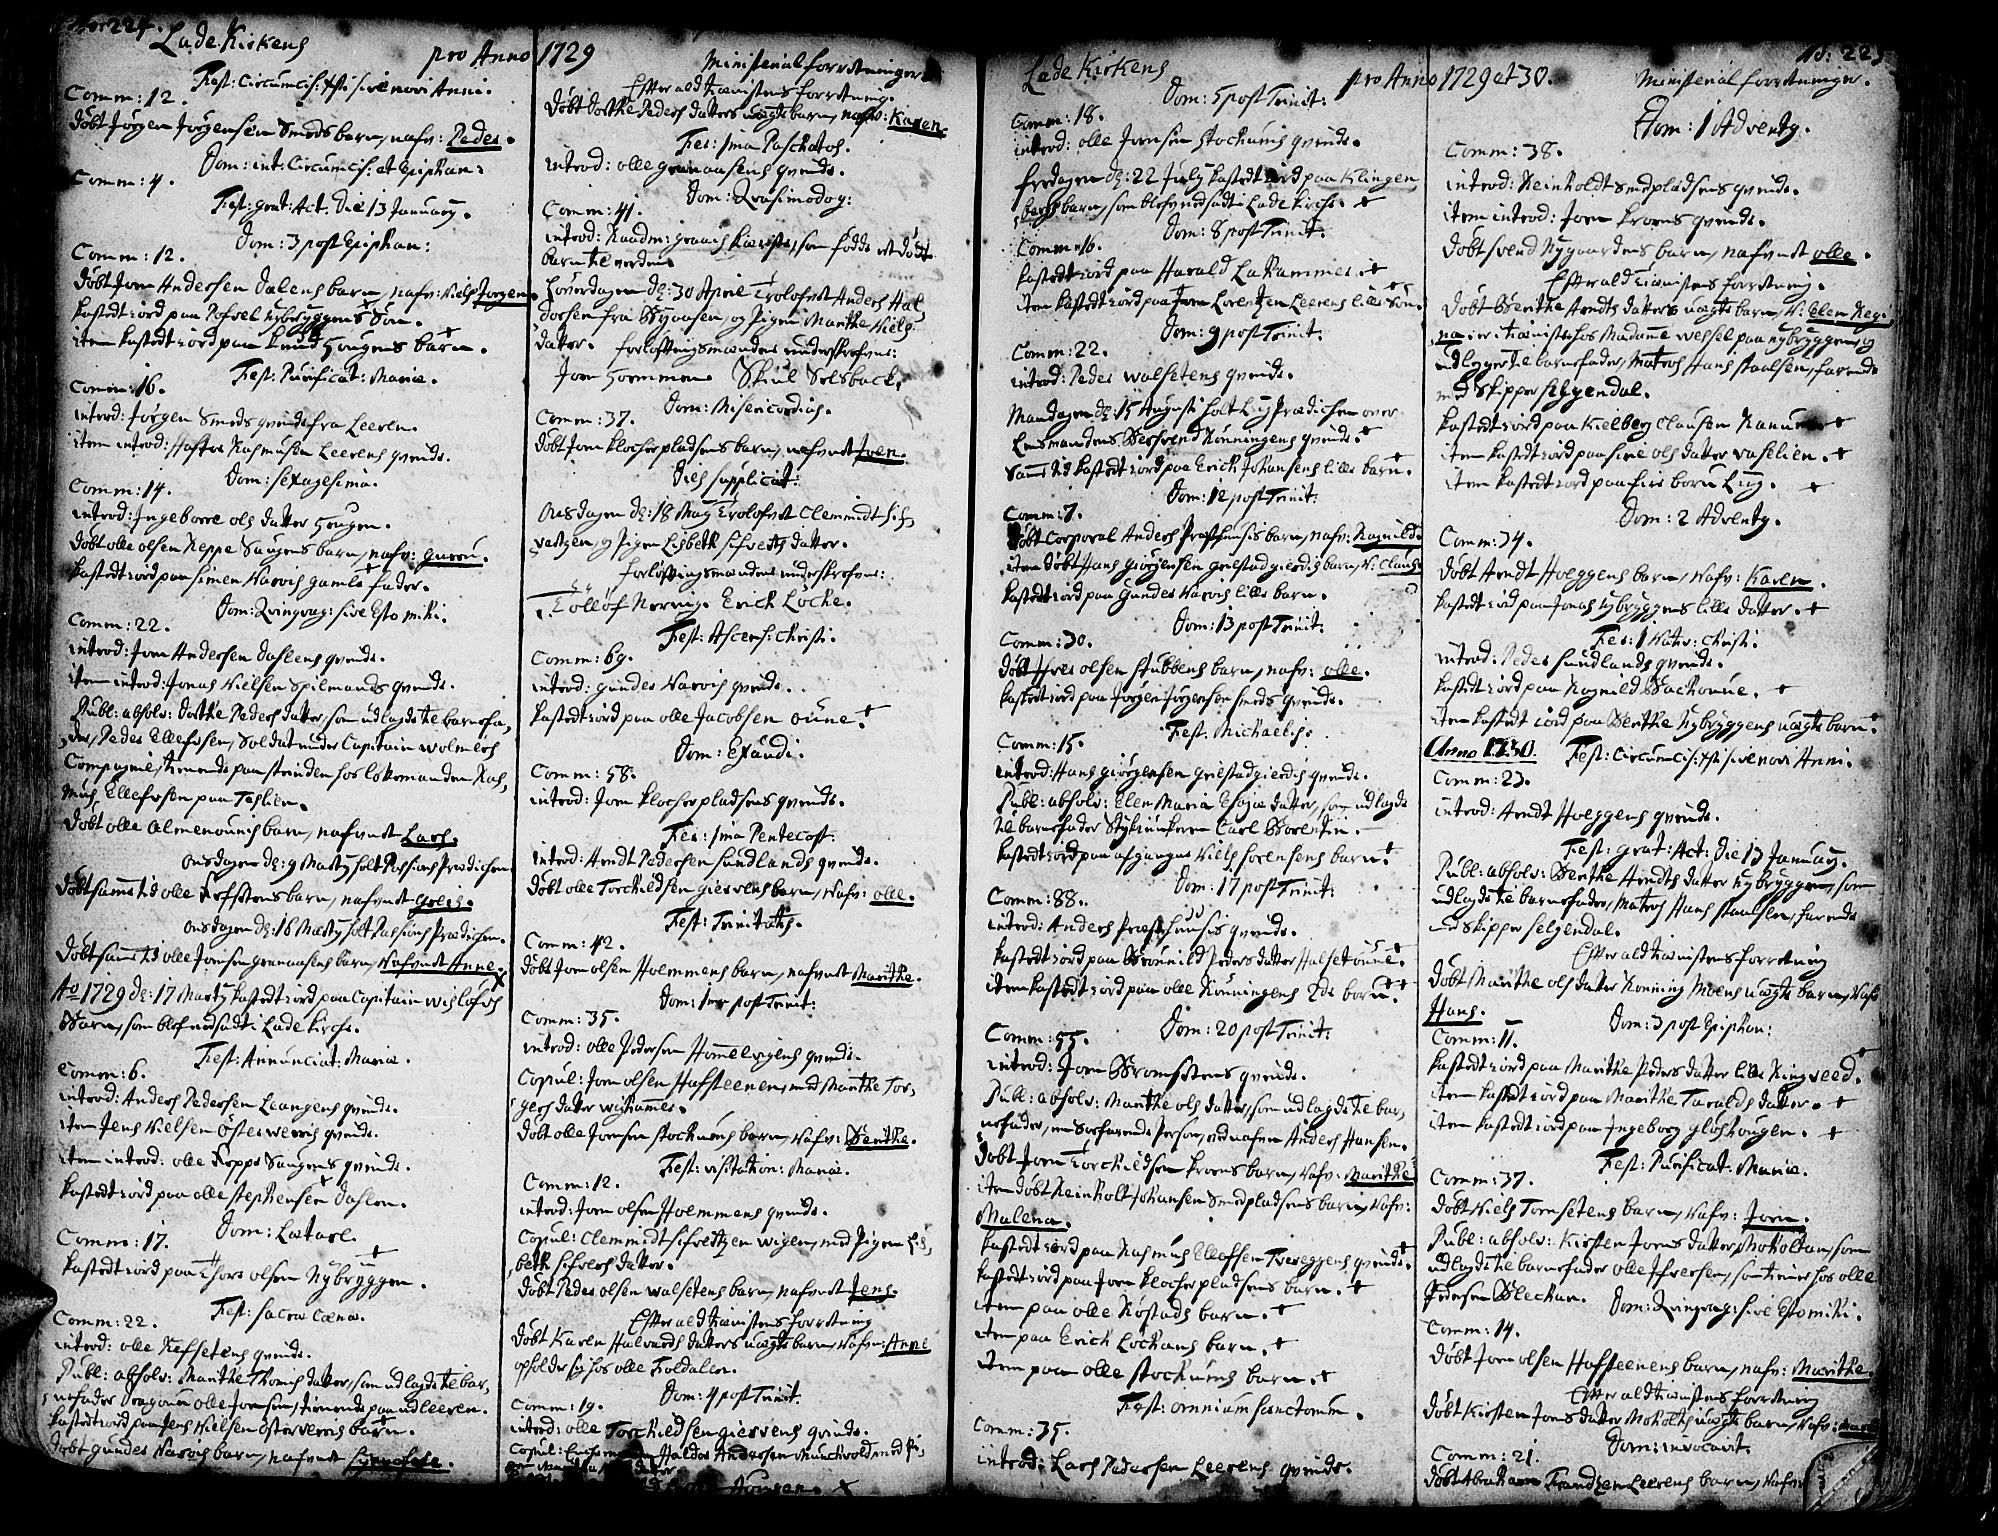 No: 224.
Lade Kirkens pro Anno 1729 Ministerial forretninger
Fest: Circumcis: Xsti sive novi Anni.
Comm: 12.
døbt Jørgen Jørgensen Smeds barn, nafv: Peder.
Dom: int: Circumcis: et Epiphan:
Comm: 4.
Fest: grat: Act: Die 13 January.
Dom: 3 post Epiphan:
Comm: 12.
døbt Joen Andersen Dalens barn, nafv: Niels Jørgen
kastedt iord paa Pofvel Nybryggens Søn. +
item kastedt iord paa Knud Hougens barn. +
Fest: Purificat: Mariæ.
Comm: 16.
introd: Jørgen Smeds qvinde fra Leeren.
item introd: Rasmusen Leerens qvinde.
Dom: Sexagesima.
Comm: 14.
introd: Ingeborre ols datter Hougen.
døbt olle olsen Reppe Saugens barn, nafv: guru.
kastedt iord paa Simen Narvis gamle fader. +
Dom: Qvinqvag: sive Esto mihi.
Comm: 22.
introd: Joen Andersen Dahlens qvinde.
item introd: Jonas Nielsen Spilmands qvinde.
Publ: absolv: Dorthe Peders datter, som udlagde til barnefa-
der, Peder Ellefsen, Soldat under Capitain Wolmers
Compagnie, tienende paa Strinden hos Lokemanden Ras-
mus Ellefsen paa Teslien.
døbt olle Almenounis barn, nafvnet Lars.
onsdagen d: 9 Marty holt Passions Prædichen
døbt samme tid olle Refsetens barn, nafvnet greis.
onsdagen d: 16 Marty holt Passions Prædichen.
døbt samme tid olle Joensen granaasens barn, Nafvnet Anne.
Ao 1729 d: 17 Marty kastedt iord paa Capitain Wisløfs +
Barn, som blef nedsadt i Lade Kirche.
Fest: Annunciat: Mariæ.
Comm: 6.
introd: Anders Pedersen Leangens qvinde.
item Jens Nielsen Østerveris qvinde.
item introd: olle Reppe Saugens qvinde.
kastedt iord paa olle Stephensen Dahlen. +
Dom: Lætare.
Comm: 17.
kastedt iord paa Thore olsen Nybryggen. +
Fest: Sacræ Cænæ.
Comm: 22.
introd: olle Refsetens qvinde.
Publ: absolv: Marithe Thomes datter, som udlagde til bar-
nefader Dragoun olle Joensen, tienende paa udleeren.
kastedt iord paa Jens Nielsen Østerveris barn. +
døbt gunder Narvis barn, nafvnet Synnefste.
Effter aldtienistens forretning.
døbt Dorthe Peders datters uægte barn, nafv: Karen.
Fer: 1ma Paschatos.
introd: olle granaasens qvinde.
Dom: Qvasimodog:
Comm: 41.
introd: Raadm: graas Kæreste, som fødde et dødt
barn til verden.
Løverdagen d: 30 April Trolofvet Anders Hal-
dorsen fra Byaasen, og Pigen Marithe Niels-
datter. forlofftningsmænder underskrefvne:
Joen Hoemmen. Skiul Solsback.
Dom: Misericordias.
Comm: 37.
døbt Joen Klocherpladsens barn, nafvnet Iven.
Dies supplicat:
Onsdagen d: 18 May Trolofvet Clemmidt Sif-
vertzen, og Pigen Lisbeth Sifverts datter.
forlofftningsmænder underskrefvne:
Tølløf Nervig. Erick Løcke.
Fest: Ascens: Christi.
Comm: 69.
introd: gunder Narvis qvinde.
kastedt iord paa olle Jacobsen oune. +
Dom: Exaudi.
Comm: 58.
introd: Joen Klocherpladsens qvinde.
Fer: 1ma Pentecost:
introd: Arndt Pedersen Sundlands qvinde.
døbt olle Torchildsen gievens barn, Nafv: olle.
Fest: Trinitatis.
Comm: 42.
døbt Joen olsen Hoemmens barn, nafvnet Marithe.
Dom: 1me post Trinit:
Comm: 35.
introd: olle Pedersen Hommelvigens qvinde.
Copul: Joen olsen Hafsteenen, med Marithe Tor-
gers datter wighammer.
døbt olle Joensen Stockunis barn, Nafv: Berithe.
Fest: Visitation: Mariæ.
Comm: 12.
introd: Joen olsen Hoemmens qvinde.
Copul: Clemmidt Sifvertzen wigen, med Pigen Lis-
beth Sifvers datter.
døbt Peder olsen walsetens barn, nafvnet Jens.
Effter aldtienistens forretning
døbt Karen Halvards datters uægte barn, Nafvn: Anne
opholder sig hos olle Foldalen.
Dom: 4 post Trinit.
Comm: 19.
introd: olle Torchildsen gievens qvinde.
Copul: Haldor Andersen Munchvold med Pi-
Lade Kirkens pro Anno 1729 et 30. Ministerial forretninger.
Dom: 5 post Trinit:
Comm: 18.
introd: olle Joensen Stockunis qvinde.
fredagen d: 22 July kastedt iord paa Klingen-
bergs barn, som blef nedsadt i Lade Kirche. +
Dom: 8 post Trinit:
Comm: 16.
kastedt iord paa Harald Lakammer. +
item kastedt iord paa Joen Lorentzen Leerens lille Søn. +
Dom: 9 post Trinit:
Comm: 22.
introd: Peder walsetens qvinde.
Mandagen d: 15 Augusti holt Liig Prædichen over
Lensmandens Berhrend Rønningens qvinde. +
Samme tid kastedt iord paa Erick Johansens lille barn. +
Dom: 12 post Trinit:
Comm: 7.
døbt Corporal Anders Præsthusis barn, nafv: Ragnild.
item døbt Hans giørgensen grilstadgierdis barn, N: Claus.
kastedt iord paa gunder Narvis lille barn.
Dom: 13 post Trinit:
Comm: 30.
døbt Iver olsen Stubbens barn, nafv: olle.
kastedt iord paa Jørgen Jørgensen Smeds qvinde.
Fest: Michaelis.
Comm: 15.
introd: Hans giørgensen grilstadgierdis qvinde.
Publ: absolv: Elen Maria Esaiæ datter, som udlagde
til barnefader Stykiunkeren Carl Borentin.
kastedt iord paa afgangne Niels Sorensens barn. +
Dom: 17 post Trinit:
Comm: 88.
introd: Anders Præsthuusis qvinde.
kastedt iord paa Brønnild Peders datter Halsetoune. +
item kastedt iord paa olle Rønningens 2de børn. +
Dom: 20 post Trinit:
Comm: 55.
introd: Joen Bromsetens qvinde.
Publ: absolv: Marithe ols datter, som udlagde til bar-
nefader, en Soefarende Person, ved nafvn Anders Hansen.
døbt Joen Torchildsen Kroens barn, Nafv: Marithe
item døbt Reinholt Johansen Smedpladsens barn, Nafv:
Malena.
kastedt iord paa Rasmus Elleffsen Tvereggens qvinde. +
kastedt iord paa Joen Klocherpladsens barn. +
item paa olle Røstads barn. +
item paa Erick Løckans barn. +
item paa olle Stockunis barn. +
Fest: omnium Sanctorum.
Comm: 35.
introd: Lars Pedersen Leerens qvinde.
Dom: 1 Adventg.
Comm: 38.
introd: Reinholdt Smedpladsens qvinde.
item introd: Joen Kroens qvinde.
døbt Svend Nygaardens barn, nafvnet olle.
Effter aldtienistens forretning.
døbt Berithe Arndts datters uægte barn, N: Elen Regi-
na, er i tienniste hos Madame Wessel paa Nybryggen, og
udlegger til barnefader, Matros Hans Staalsen, farende
med Skipper Selgendal.
kastedt iord paa Kielberg Clausen Ranum +
item kastedt iord paa Sine ols datter vaslien. +
item kastedt iord paa fire børn Liig. +
Dom: 2 Adventg.
Comm: 34.
døbt Arndt Hoeggens barn, Nafv: Karen.
kastedt iord paa Jonas Nybryggens lille datter. +
Fer: 1 Nativ: Christi.
introd: Peder Sundlands qvinde.
kastedt iord paa Ragnild Backoune. +
item kastedt iord paa Berithe Nybryggens uægte barn. +
Anno 1730. Fest: Circumcis: Xsti sive novi Anni.
Comm: 23.
introd: Arndt Hoeggens qvinde.
Fest: grat: Act: Die 13 January.
Publ: absolv: Berithe Arndts datter Nybryggen, som
udlagde til barnefader, Matros Hans Staalsen, farende
med Skipper Selgendal.
Effter aldtienistens forretning
døbt Marithe ols datter Ronning Moens uægte barn, Nafv:
Hans.
Dom: 3 post Epiphan:
Comm: 11.
kastedt iord paa Marithe Peders datter lille Ringveed. +
item kastedt iord paa Marithe Taralds datter. +
item kastedt iord paa Ingeborg gløshougen. +
Fest: Purificat: Mariæ.
Comm: 37.
døbt Niels Tornsetens barn, Nafv: Joen.
Publ: absolv: Kirsten Joens datter Moholtan, som
udlagde til barnefader olle Ifversen, som tiener hos olle
Pedersen Bleckan. Dom: Qvinqvag: sive Estomihi.
Comm: 14.
døbt Joen olsen Hafsteenens barn, nafv: Marithe.
Effter aldtienistens forretning
døbt Kirsten Joens datter Moholts uægte barn, Nafv:
Dom: invocavit.
Comm: 21.
døbt Abraham Frandzen Leerens barn, Nafv: